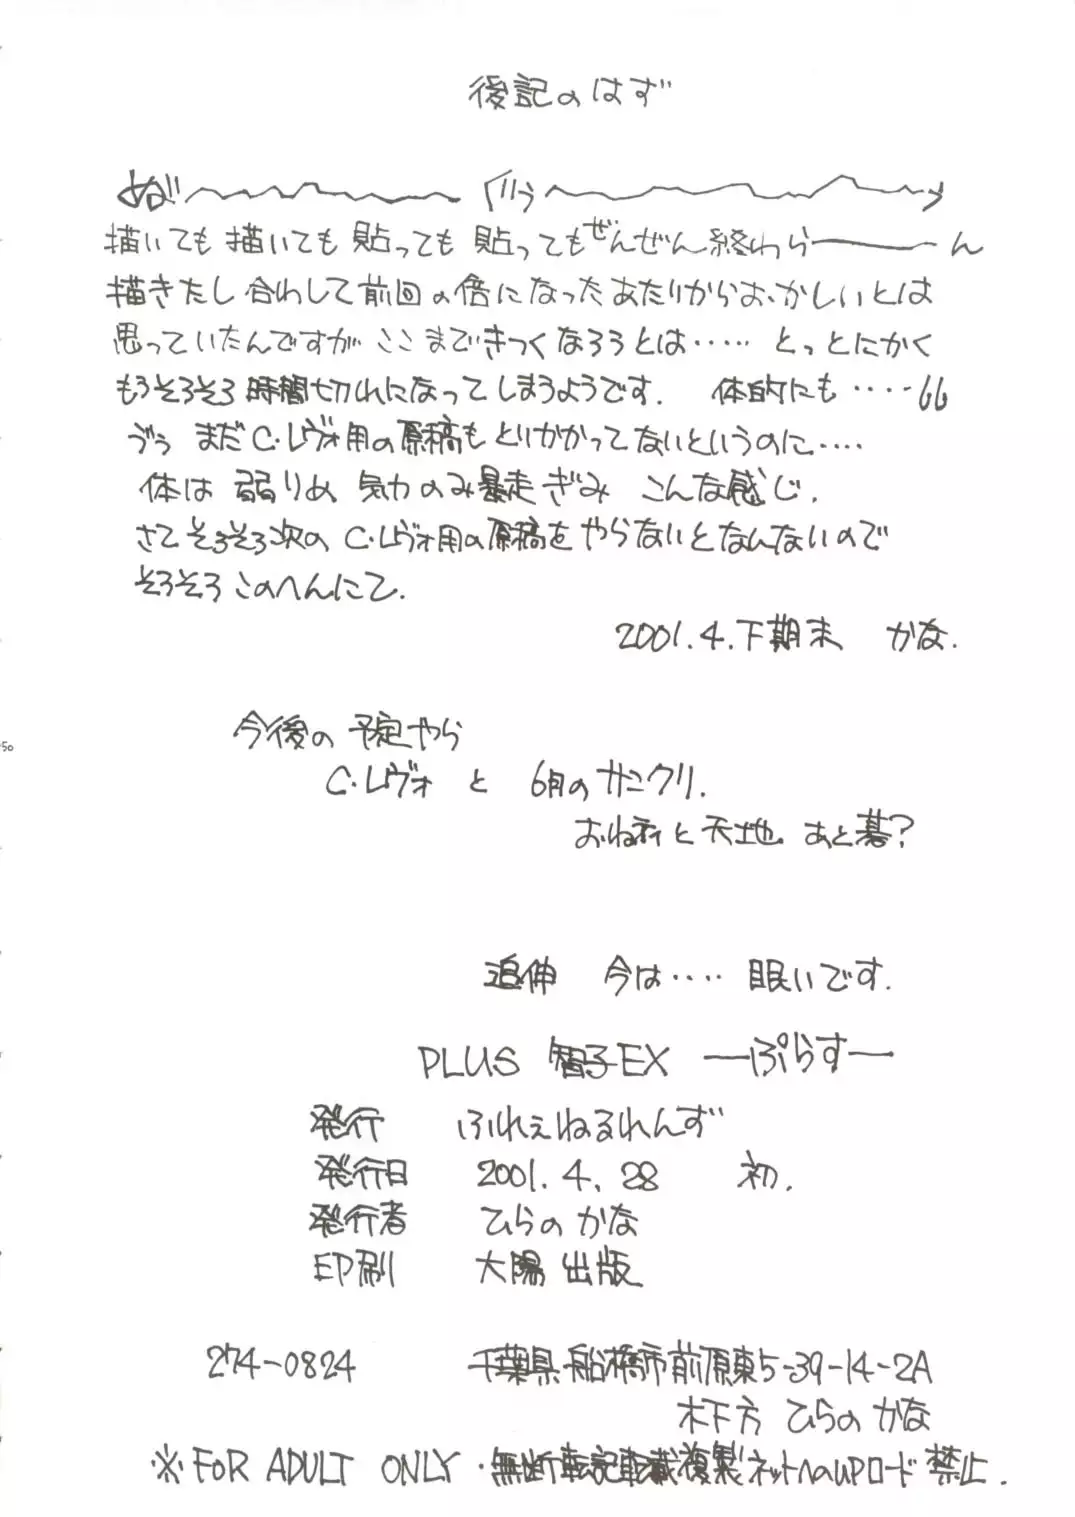 後記のはず
ぬぉ〜〜〜〜〜 ぐぅぅ〜〜〜〜〜っ
描いても描いても 貼っても 貼ってもぜんぜん終わら―――ん
描きたし合わして前回の倍になったあたりからおかしいとは
思っていたんですが ここまできつくなろうとは‥‥‥ とっとにかく
もうそろそろ時間切れになってしまうようです. 体的にも ‥‥
ううぅ まだC.レヴォ用の原稿もとりかかってないというのに‥‥
体は 弱りめ 気力のみ暴走ぎみ こんな感じ.
さてそろそろ次の C.レヴォ用の原稿をやらないとなんないので
そろそろ このへんにて.
2001.4.下期末 かな.
今後の予定やら
C.レヴォ と 6月のサンクリ.
おねティと天地 あと碁?
追伸 今は‥‥ 眠いです.
PLUS 智子EX ―ぷらす―
発行 ふれぇねるれんず
発行日 2001.4.28 初.
発行者 ひらの かな
印刷 大陽出版
274-0824 千葉県船橋市前原東5-39-14-2A
木下方 ひらの かな
※FOR ADULT ONLY・無断転記転載複製ネットへのUPロード禁止.
50